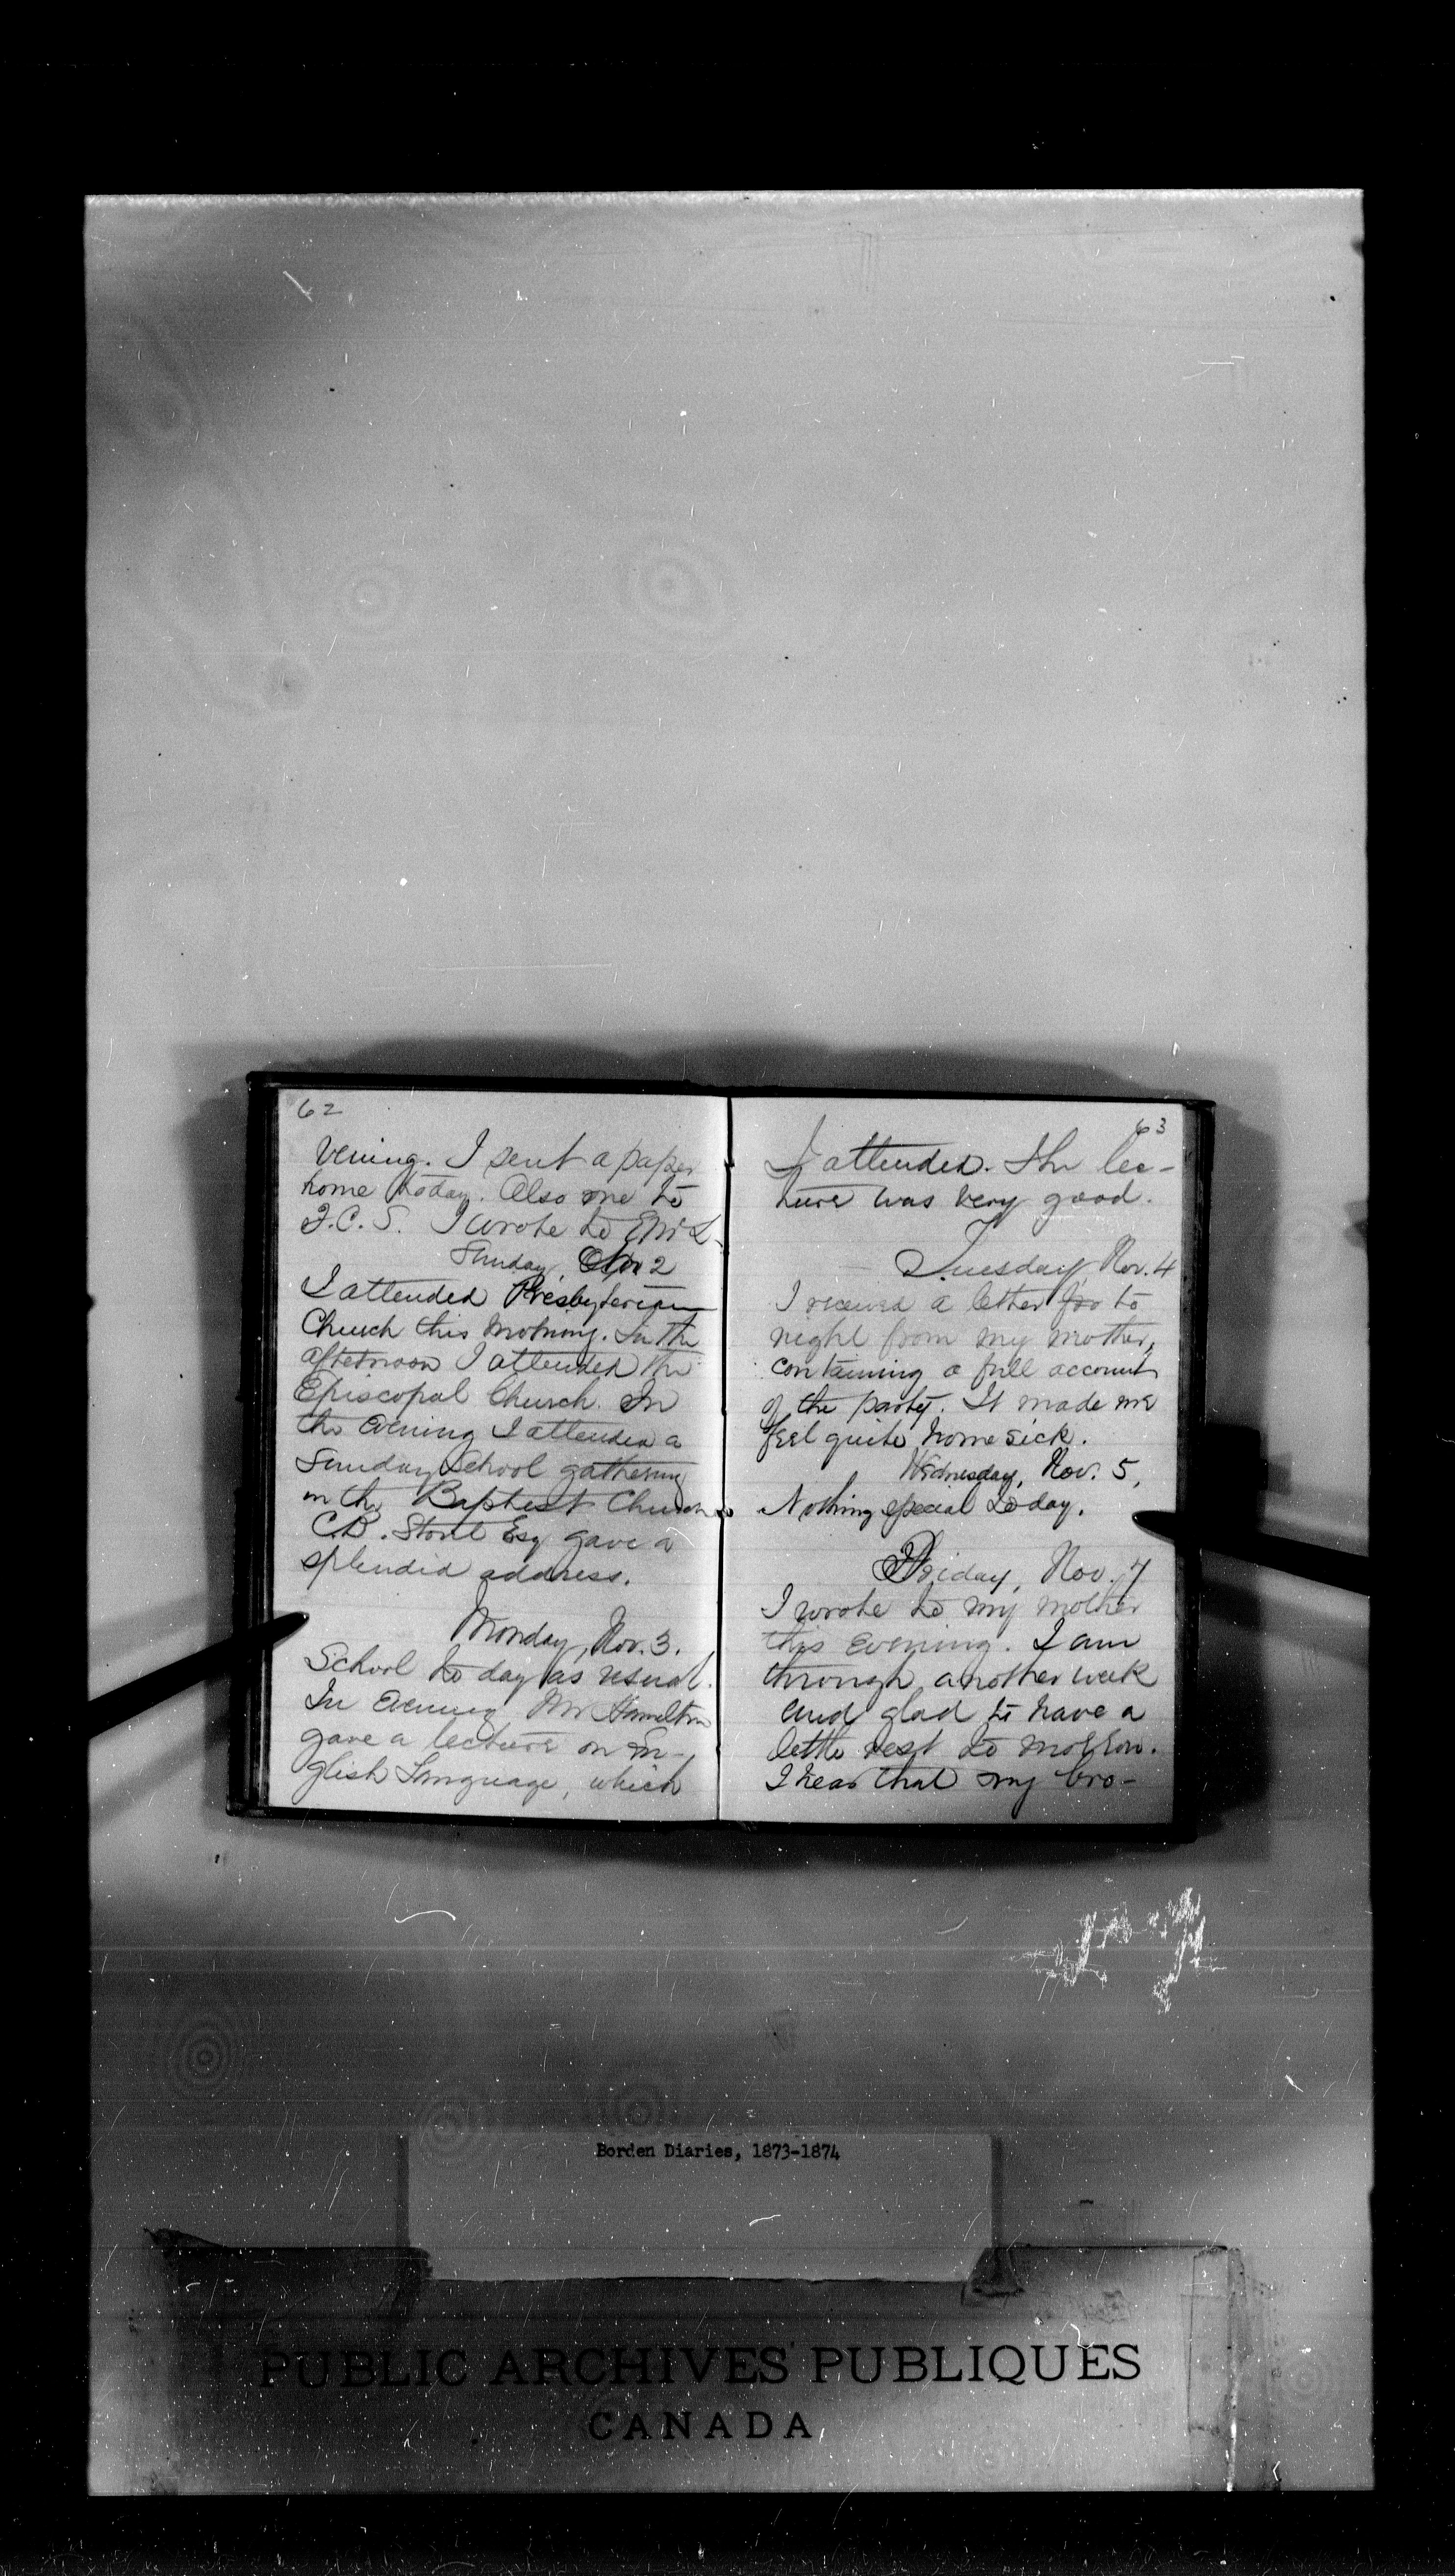 62
vening. I sent a paper
home today. Also one to
F.C.S. I wrote to
Sunday, Nov 2
I attended Presbyterian
Church this morning. In the
afternoon I attended the
Episcopal Church. In
the evening I attended a
Sunday School gathering
in the Baptist Church
C.B. Stout Esq gave a
splendid address.
Monday, Nov. 3.
School to day as usual.
In evening Mr Hamilton
gave a lecture on En-
glish Language, which
63
I attended. The lec-
ture was very good.
Tuesday, Nov. 4
I received a letter to
night from my mother,
containing a full account
of the party. It made me
feel quite homesick.
Wednesday, Nov. 5,
Nothing special to day.
Friday, Nov. 7
I wrote to my mother
this evening. I am
through another week
and glad to have a
little rest to morrow.
I hear that my bro-
Borden Diaries, 1873-1874
PUBLIC ARCHIVES PUBLIQUES
CANADA